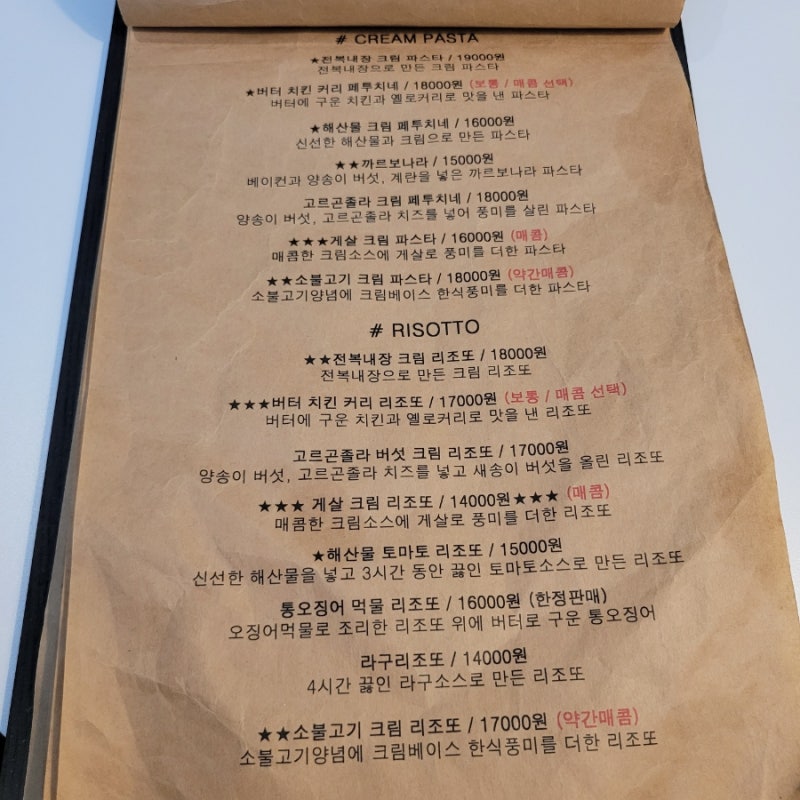 # CREAM PASTA
★전복내장 크림 파스타 / 19000원
전복내장으로 만든 크림 파스타
★버터 치킨 커리 페투치네 / 18000원 (보통 / 매콤 선택)
버터에 구운 치킨과 옐로커리로 맛을 낸 파스타
★해산물 크림 페투치네 / 16000원
신선한 해산물과 크림으로 만든 파스타
★★까르보나라 / 15000원
베이컨과 양송이 버섯, 계란을 넣은 까르보나라 파스타
고르곤졸라 크림 페투치네 / 18000원
양송이 버섯, 고르곤졸라 치즈를 넣어 풍미를 살린 파스타
★★★게살 크림 파스타 / 16000원 (매콤)
매콤한 크림소스에 게살로 풍미를 더한 파스타
★★소불고기 크림 파스타 / 18000원 (약간매콤)
소불고기양념에 크림베이스 한식풍미를 더한 파스타
# RISOTTO
★★전복내장 크림 리조또 / 18000원
전복내장으로 만든 크림 리조또
★★★버터 치킨 커리 리조또 / 17000원 (보통 / 매콤 선택)
버터에 구운 치킨과 옐로커리로 맛을 낸 리조또
고르곤졸라 버섯 크림 리조또 / 17000원
양송이 버섯, 고르곤졸라 치즈를 넣고 새송이 버섯을 올린 리조또
★★★ 게살 크림 리조또 / 14000원★★★ (매콤)
매콤한 크림소스에 게살로 풍미를 더한 리조또
★해산물 토마토 리조또 / 15000원
신선한 해산물을 넣고 3시간 동안 끓인 토마토소스로 만든 리조또
통오징어 먹물 리조또 / 16000원 (한정판매)
오징어먹물로 조리한 리조또 위에 버터로 구운 통오징어
라구리조또 / 14000원
4시간 끓인 라구소스로 만든 리조또
★★소불고기 크림 리조또 / 17000원 (약간매콤)
소불고기양념에 크림베이스 한식풍미를 더한 리조또